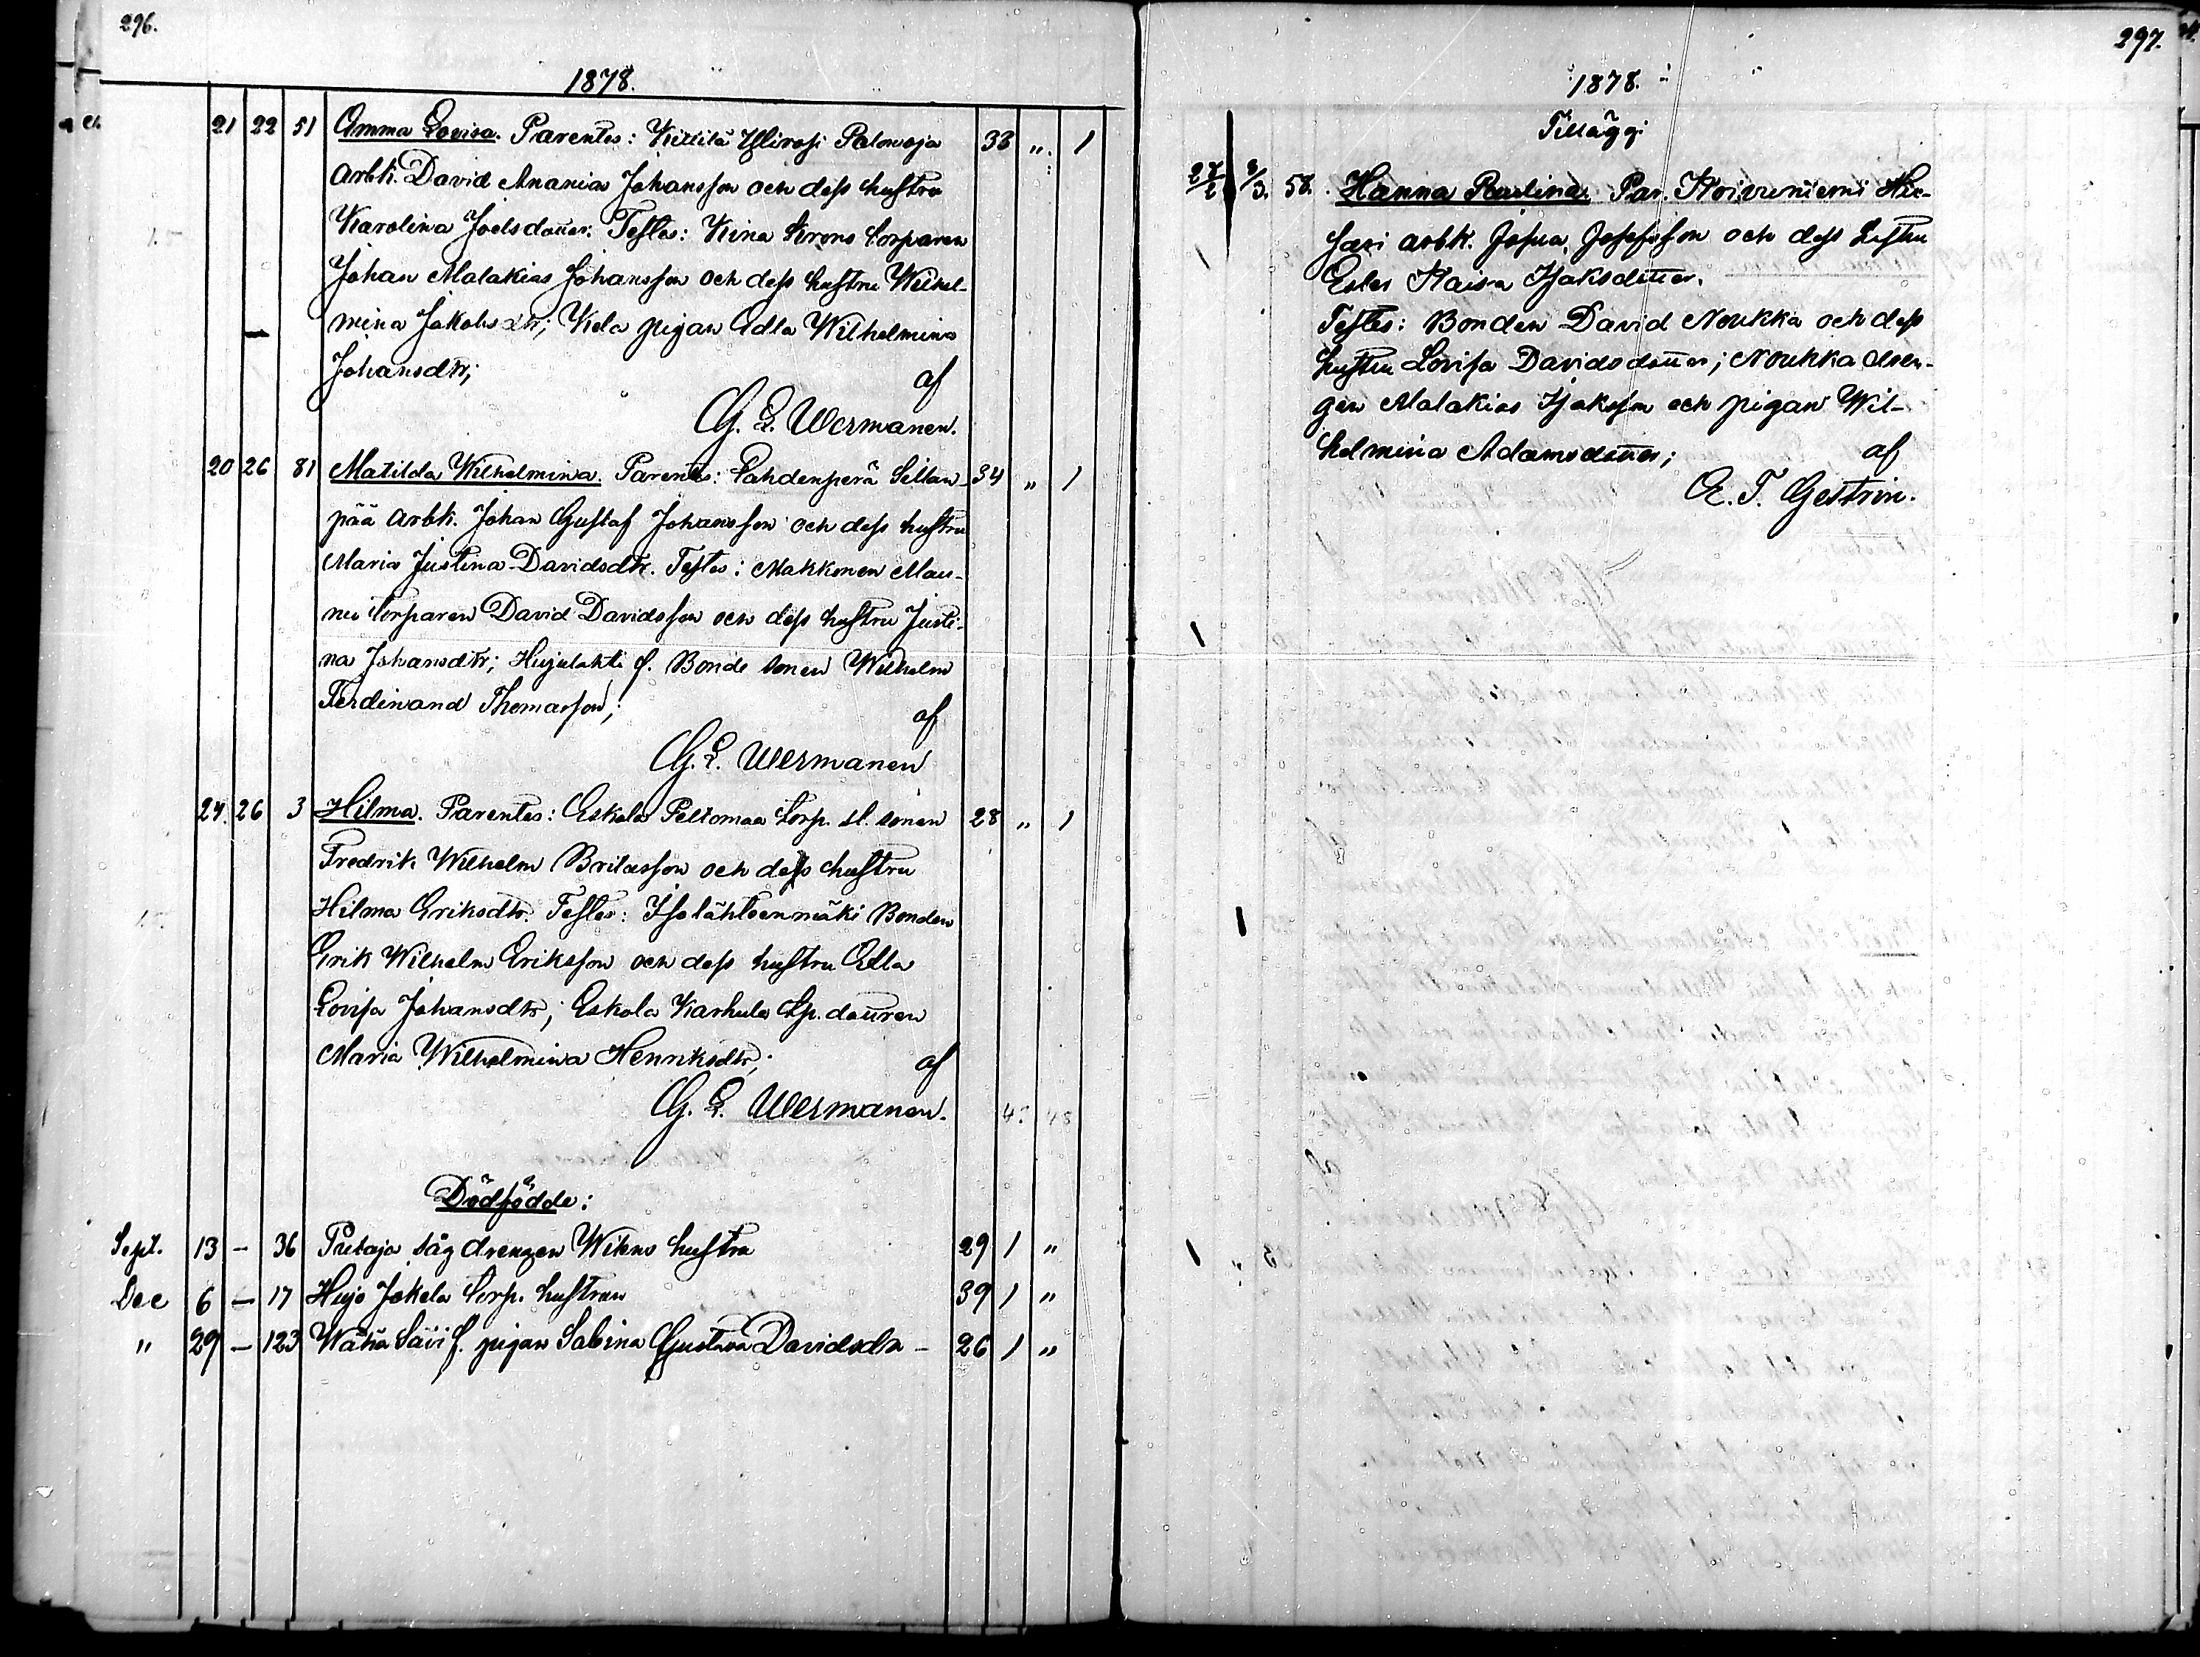 296.
1878.
21 22 51 Amma Lovisa. Parentes: Kittilä Hirosi Palowaja 33 " 1
arbk. David Ananias Johansson och dess hustru
Karolina Joelsdotter. Testes: Kina Krono torparen
Johan Malakias Johansson och dess hustru Wilhel-
mina Jakobsdtr; Kela pigan Edla Wilhelmina
Johansdtr; af
G. L. Wermanen.
20 26 81 Matilda Wilhelmina. Parentes: Pahdenperä Sillan- 34 " 1
pää arbk. Johan Gustaf Johansson och dess hustru
Maria Justina Davidsdtr. Testes: Makkonen Mau-
nu torparen David Davidsson och dess hustru Justi-
na Johansdtr; Hujulahti f. Bonde sonen Wilhelm
Ferdinand Thomasson; af
G. L. Wermanen
24. 26 3 Hilma. Parentes: Eskola Peltomaa torp. sl. sonen 28 " 1
Fredrik Wilhelm Britasson och dess hustru
Hilma Eriksdtr. Testes: Isolähteenmäki Bonden
Erik Wilhelm Eriksson och dess hustru Edla
Lovisa Johansdtr; Eskola Karhula tp. dottren
Maria Wilhelmina Henriksdtr; af
G. L. Wermanen.
Dödfödde:
Sept. 13 – 36 Putaja såg drengen Witkns hustru 29 1 "
Dec 6 – 17 Hujo Jokela torp. hustrun 39 1 "
" 29 – 123 Wähä Säii f. pigan Sabina Gustava Davidsdr – 26 1 "
297.
1878.
Tillägg
27/2 3/3. 58. Hanna Paulina. Par. Koivuniemi
arbk. Josua Josefsson och dess hustru
Ester Kaisa Isaksdotter.
Testes: Bonden David Noukka och dess
hustru Lovisa Davidsdotter; Noukka dren-
gen Malakias Isaksson och pigan Wil-
helmina Adamsdotter; af
E. T. Gestrin.